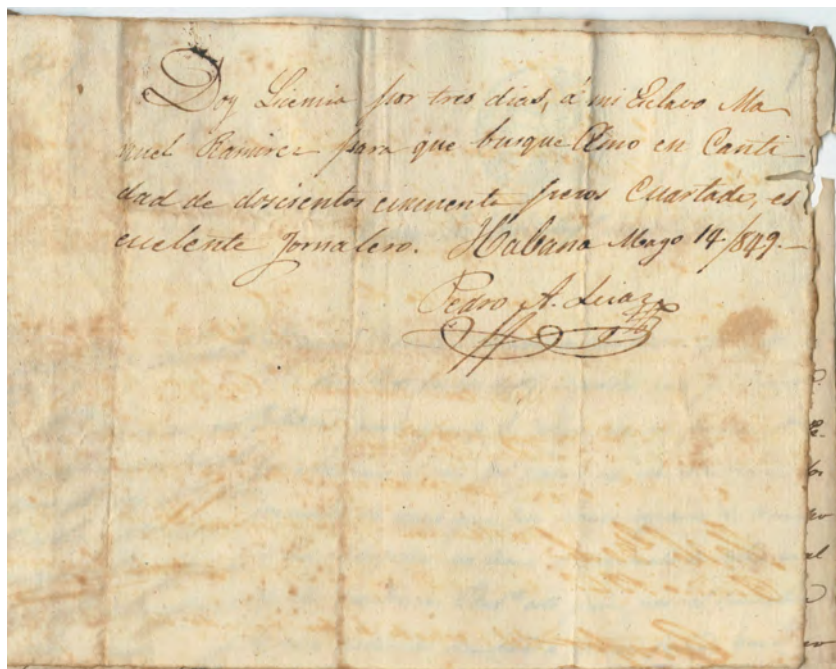 Doy Licencia por tres dias, á mi Esclavo Ma
nuel Ramirez para que busque Amo en Canti
dad de doscientos cincuenta pesos Cuartado, es
ecselente Jornalero. Habana Mayo 14/849.-
Pedro A.